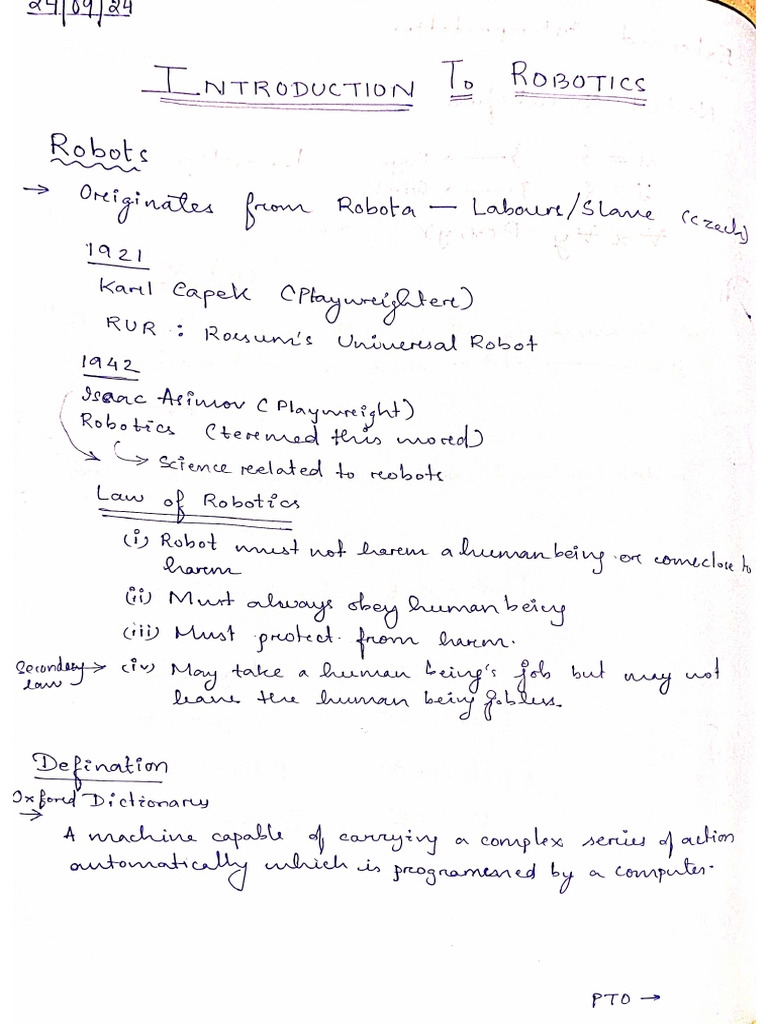 24/09/24
INTRODUCTION TO ROBOTICS
Robots
→ Oreiginates from Robota — Laboure/Slave (Czech)
1921
Karel Capek (Playwreightere)
RUR : Roesum's Univeresal Robot
1942
Isaac Asimov (Playwreight)
Robotics (teremed this word)
→ Science reelated to reobots
Law of Robotics
(i) Robot must not harem a human being or come close to
harem
(ii) Must always obey human being
(iii) Must protect from harem.
Secondery law → (iv) May take a human being's job but may not
leave the human being jobless.
Defination
Oxfored Dictionarey
→
A machine capable of carrying a complex series of action
automatically which is programemed by a computer.
PTO →